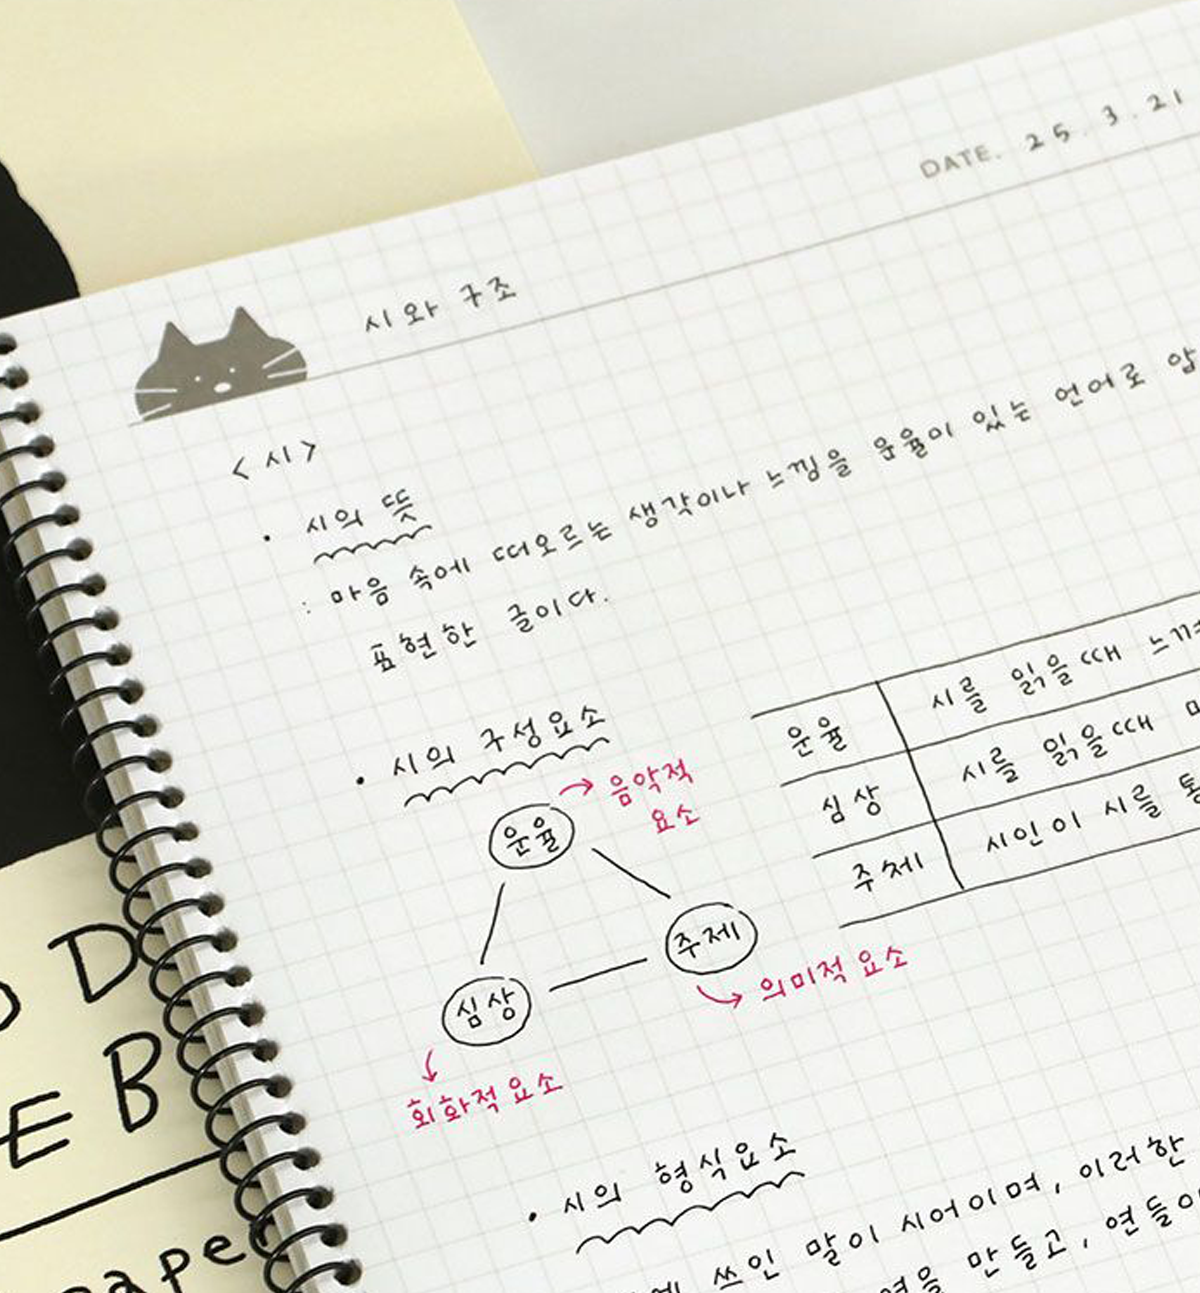 DATE. 25.3.21
시와 구조
<시>
· 시의 뜻
: 마음 속에 떠오르는 생각이나 느낌을 운율이 있는 언어로
표현한 글이다.
· 시의 구성요소
운율 → 음악적
요소
주제
→ 의미적 요소
심상
→ 회화적 요소
운율 시를 읽을때
심상 시를 읽을때
주제 시인이 시를
· 시의 형식요소
쓰인 말이 시어이며, 이러한
만들고,
D
E B